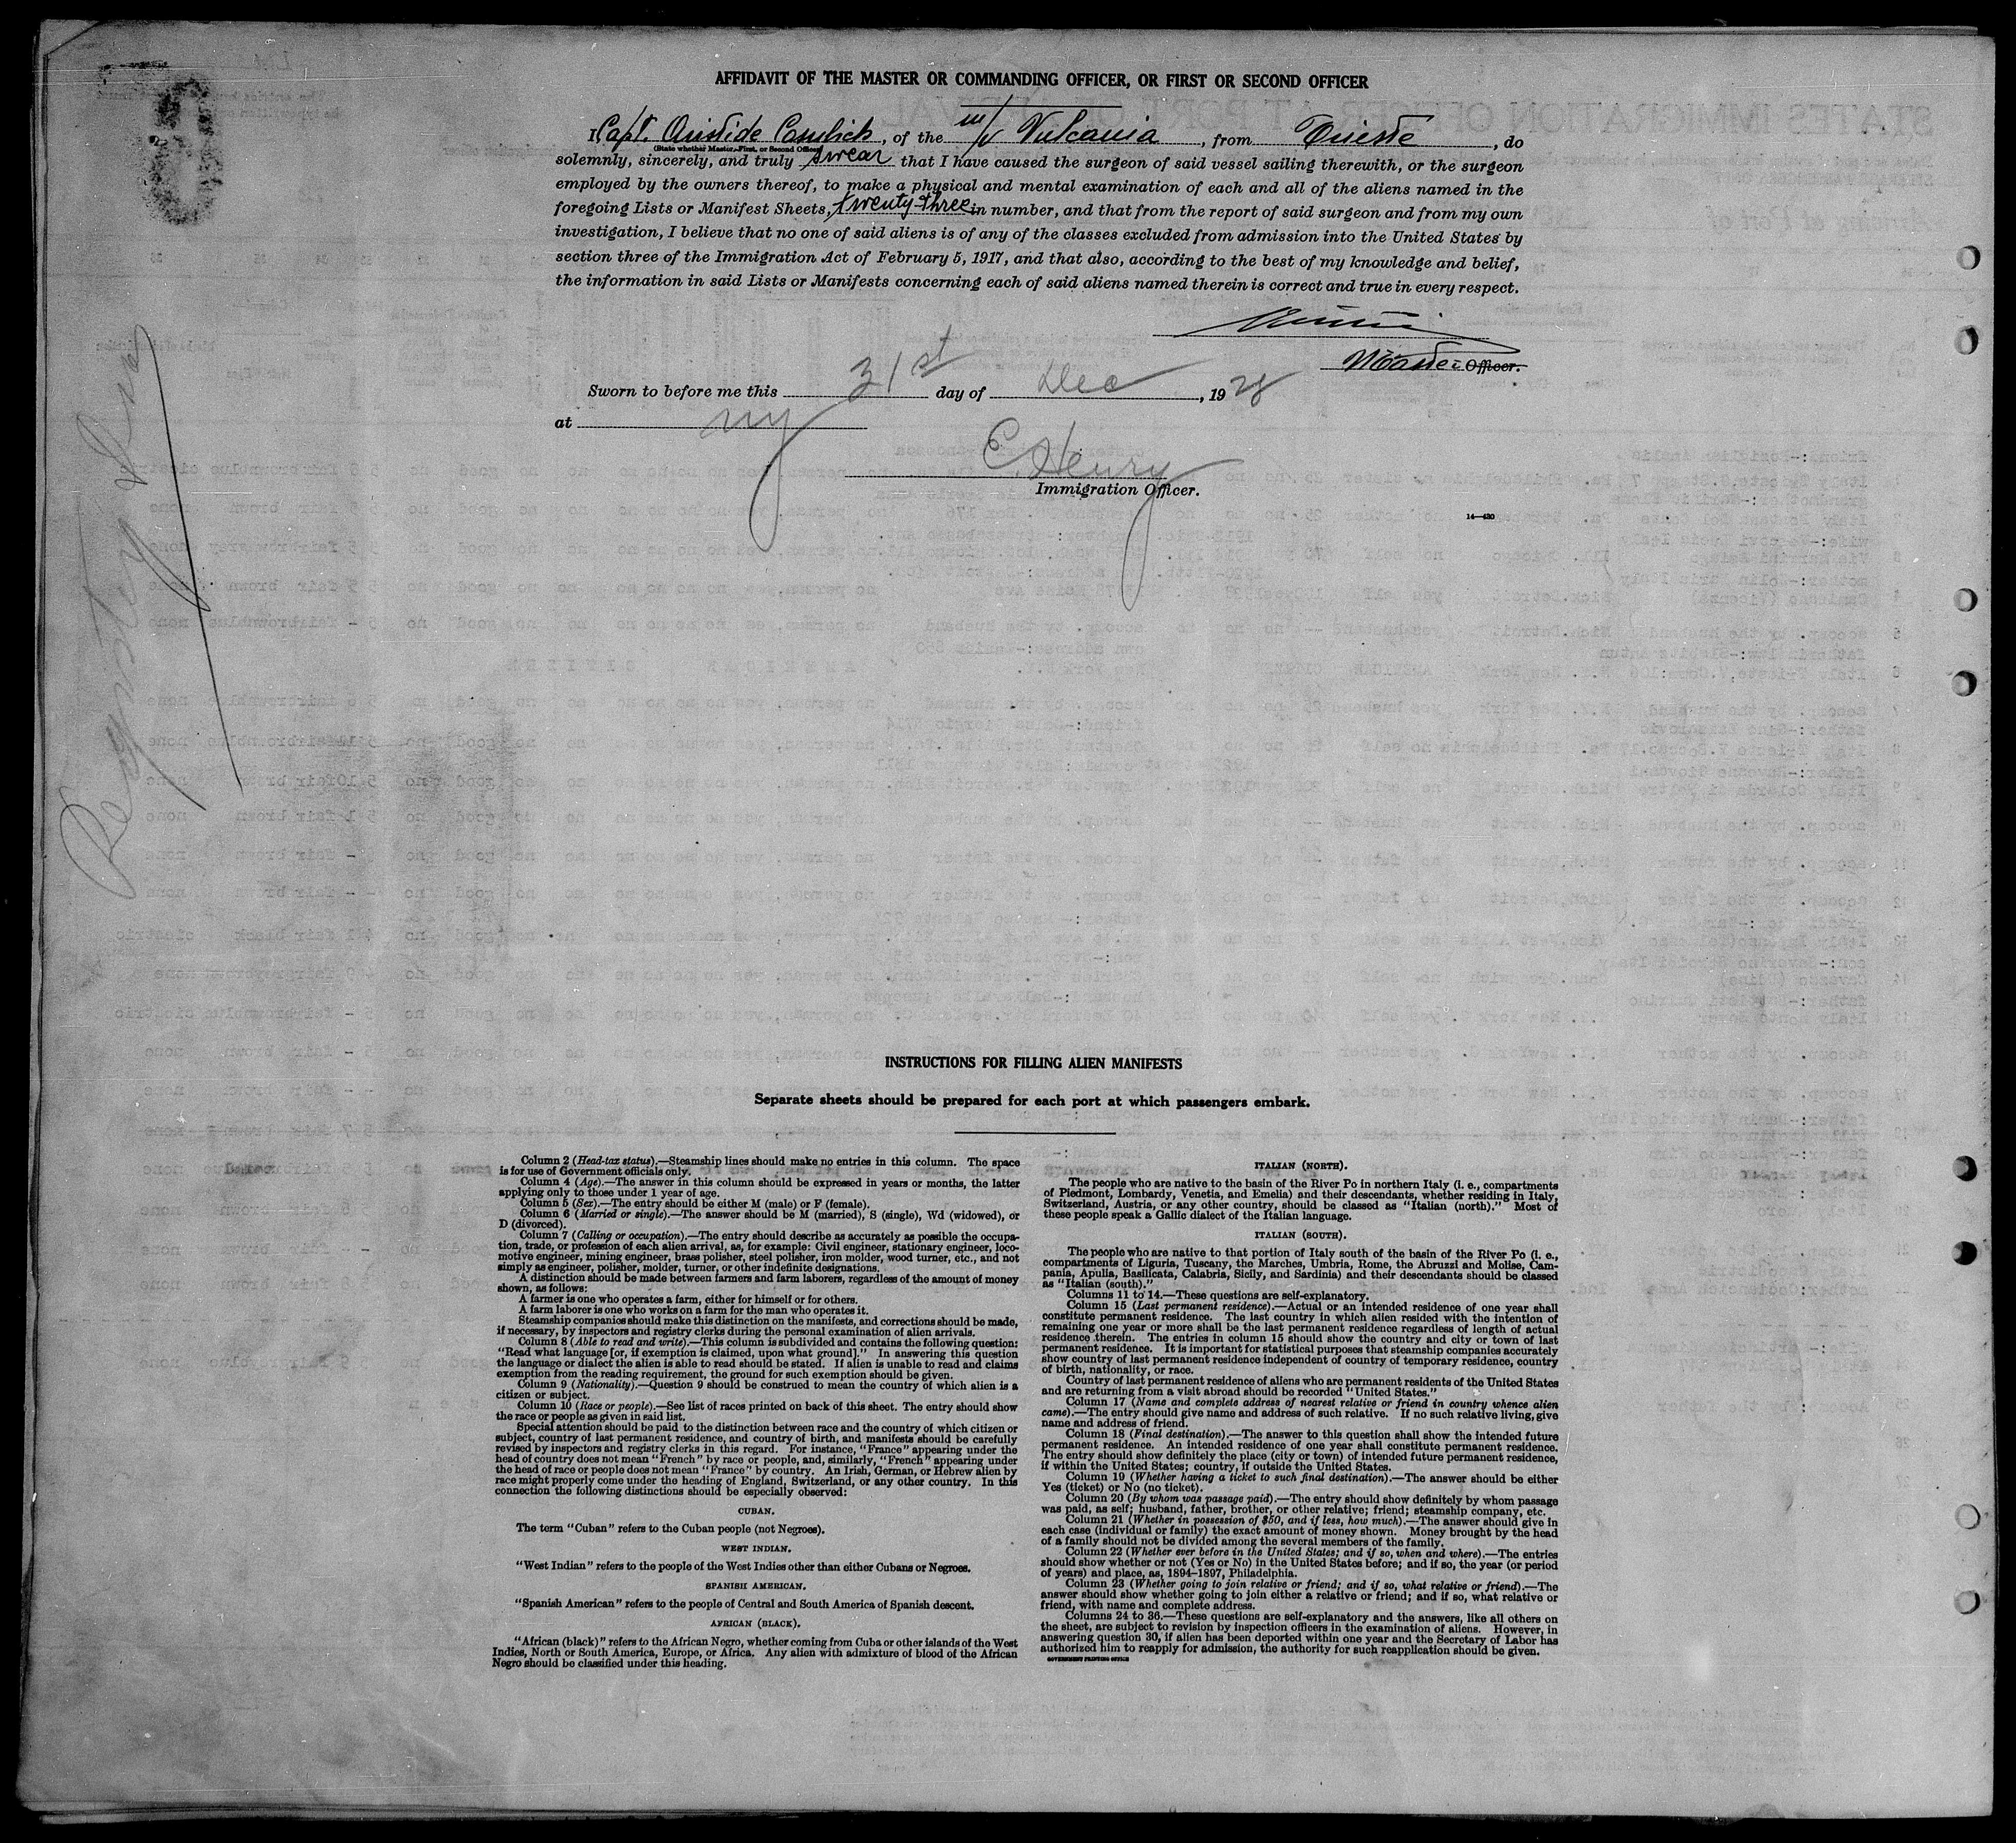 AFFIDAVIT OF THE MASTER OR COMMANDING OFFICER, OR FIRST OR SECOND OFFICER
I, Capt. Aristide Cosulich, of the m/v Vulcania, from Trieste, do
(State whether Master, First, or Second Officer)
solemnly, sincerely, and truly swear that I have caused the surgeon of said vessel sailing therewith, or the surgeon
employed by the owners thereof, to make a physical and mental examination of each and all of the aliens named in the
foregoing Lists or Manifest Sheets, twenty-three in number, and that from the report of said surgeon and from my own
investigation, I believe that no one of said aliens is of any of the classes excluded from admission into the United States by
section three of the Immigration Act of February 5, 1917, and that also, according to the best of my knowledge and belief,
the information in said Lists or Manifests concerning each of said aliens named therein is correct and true in every respect.
Master Officer.
Sworn to before me this 31st day of Dec, 1928
at NY
C. Henry
Immigration Officer.
14—430
INSTRUCTIONS FOR FILLING ALIEN MANIFESTS
Separate sheets should be prepared for each port at which passengers embark.
Column 2 (Head-tax status).—Steamship lines should make no entries in this column. The space
is for use of Government officials only.
Column 4 (Age).—The answer in this column should be expressed in years or months, the latter
applying only to those under 1 year of age.
Column 5 (Sex).—The entry should be either M (male) or F (female).
Column 6 (Married or single).—The answer should be M (married), S (single), Wd (widowed), or
D (divorced).
Column 7 (Calling or occupation).—The entry should describe as accurately as possible the occupa-
tion, trade, or profession of each alien arrival, as, for example: Civil engineer, stationary engineer, loco-
motive engineer, mining engineer, brass polisher, steel polisher, iron molder, wood turner, etc., and not
simply as engineer, polisher, molder, turner, or other indefinite designations.
A distinction should be made between farmers and farm laborers, regardless of the amount of money
shown, as follows:
A farmer is one who operates a farm, either for himself or for others.
A farm laborer is one who works on a farm for the man who operates it.
Steamship companies should make this distinction on the manifests, and corrections should be made,
if necessary, by inspectors and registry clerks during the personal examination of alien arrivals.
Column 8 (Able to read and write).—This column is subdivided and contains the following question:
"Read what language [or, if exemption is claimed, upon what ground]." In answering this question
the language or dialect the alien is able to read should be stated. If alien is unable to read and claims
exemption from the reading requirement, the ground for such exemption should be given.
Column 9 (Nationality).—Question 9 should be construed to mean the country of which alien is a
citizen or subject.
Column 10 (Race or people).—See list of races printed on back of this sheet. The entry should show
the race or people as given in said list.
Special attention should be paid to the distinction between race and the country of which citizen or
subject, country of last permanent residence, and country of birth, and manifests should be carefully
revised by inspectors and registry clerks in this regard. For instance, "France" appearing under the
head of country does not mean "French" by race or people, and, similarly, "French" appearing under
the head of race or people does not mean "France" by country. An Irish, German, or Hebrew alien by
race might properly come under the heading of England, Switzerland, or any other country. In this
connection the following distinctions should be especially observed:
CUBAN.
The term "Cuban" refers to the Cuban people (not Negroes).
WEST INDIAN.
"West Indian" refers to the people of the West Indies other than either Cubans or Negroes.
SPANISH AMERICAN.
"Spanish American" refers to the people of Central and South America of Spanish descent.
AFRICAN (BLACK).
"African (black)" refers to the African Negro, whether coming from Cuba or other islands of the West
Indies, North or South America, Europe, or Africa. Any alien with admixture of blood of the African
Negro should be classified under this heading.
ITALIAN (NORTH).
The people who are native to the basin of the River Po in northern Italy (i. e., compartments
of Piedmont, Lombardy, Venetia, and Emelia) and their descendants, whether residing in Italy,
Switzerland, Austria, or any other country, should be classed as "Italian (north)." Most of
these people speak a Gallic dialect of the Italian language.
ITALIAN (SOUTH).
The people who are native to that portion of Italy south of the basin of the River Po (i. e.,
compartments of Liguria, Tuscany, the Marches, Umbria, Rome, the Abruzzi and Molise, Cam-
pania, Apulia, Basilicata, Calabria, Sicily, and Sardinia) and their descendants should be classed
as "Italian (south)."
Columns 11 to 14.—These questions are self-explanatory.
Column 15 (Last permanent residence).—Actual or an intended residence of one year shall
constitute permanent residence. The last country in which alien resided with the intention of
remaining one year or more shall be the last permanent residence regardless of length of actual
residence therein. The entries in column 15 should show the country and city or town of last
permanent residence. It is important for statistical purposes that steamship companies accurately
show country of last permanent residence independent of country of temporary residence, country
of birth, nationality, or race.
Country of last permanent residence of aliens who are permanent residents of the United States
and are returning from a visit abroad should be recorded "United States."
Column 17 (Name and complete address of nearest relative or friend in country whence alien
came).—The entry should give name and address of such relative. If no such relative living, give
name and address of friend.
Column 18 (Final destination).—The answer to this question shall show the intended future
permanent residence. An intended residence of one year shall constitute permanent residence.
The entry should show definitely the place (city or town) of intended future permanent residence,
if within the United States; country, if outside the United States.
Column 19 (Whether having a ticket to such final destination).—The answer should be either
Yes (ticket) or No (no ticket).
Column 20 (By whom was passage paid).—The entry should show definitely by whom passage
was paid, as self; husband, father, brother, or other relative; friend; steamship company, etc.
Column 21 (Whether in possession of $50, and if less, how much).—The answer should give in
each case (individual or family) the exact amount of money shown. Money brought by the head
of a family should not be divided among the several members of the family.
Column 22 (Whether ever before in the United States; and if so, when and where).—The entries
should show whether or not (Yes or No) in the United States before; and if so, the year (or period
of years) and place, as, 1894-1897, Philadelphia.
Column 23 (Whether going to join relative or friend; and if so, what relative or friend).—The
answer should show whether going to join either a relative or friend; and if so, what relative or
friend, with name and complete address.
Columns 24 to 36.—These questions are self-explanatory and the answers, like all others on
the sheet, are subject to revision by inspection officers in the examination of aliens. However, in
answering question 30, if alien has been deported within one year and the Secretary of Labor has
authorized him to reapply for admission, the authority for such reapplication should be given.
GOVERNMENT PRINTING OFFICE